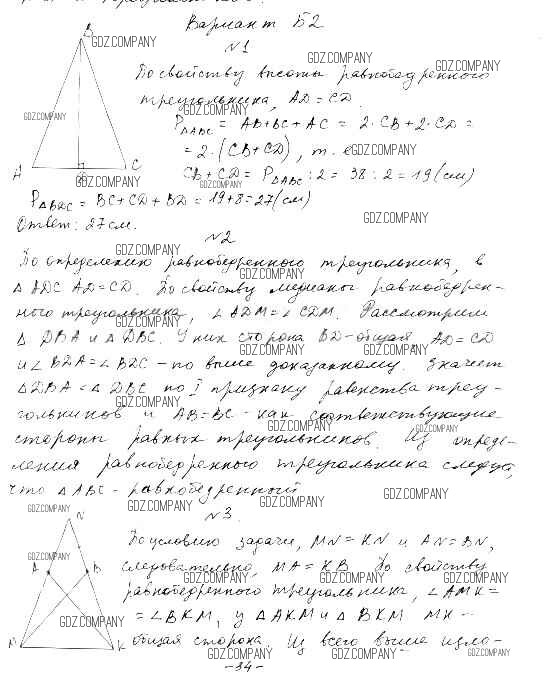 Вариант Б2
№1
По свойству высоты равнобедренного
треугольника, AD = CD.
P△ABC = AB+BC+AC = 2·CB+2·CD =
= 2·(CB+CD), т.е.
CB+CD = P△ABC : 2 = 38 : 2 = 19 (см)
P△BDC = BC+CD+BD = 19+8 = 27 (см)
Ответ: 27 см.
№2
По определению равнобедренного треугольника, в
△ ADC AD=CD. По свойству медианы равнобедрен-
ного треугольника, ∠ADM = ∠CDM. Рассмотрим
△ DBA и △ DBC. У них сторона BD-общая, AD=CD
и ∠BDA=∠BDC - по выше доказанному. Значит
△DBA = △DBC по I признаку равенства треу-
гольников и AB=BC - как соответствующие
стороны равных треугольников. Из опреде-
ления равнобедренного треугольника следует,
что △ABC - равнобедренный
№3
По условию задачи, MN = KN и AN = BN,
следовательно, MA = KB. По свойству
равнобедренного треугольника, ∠AMK =
= ∠BKM, у △AKM и △BKM MK -
общая сторона. Из всего выше изло-
-34-
B
A
C
N
A
B
M
K
GDZ.COMPANY